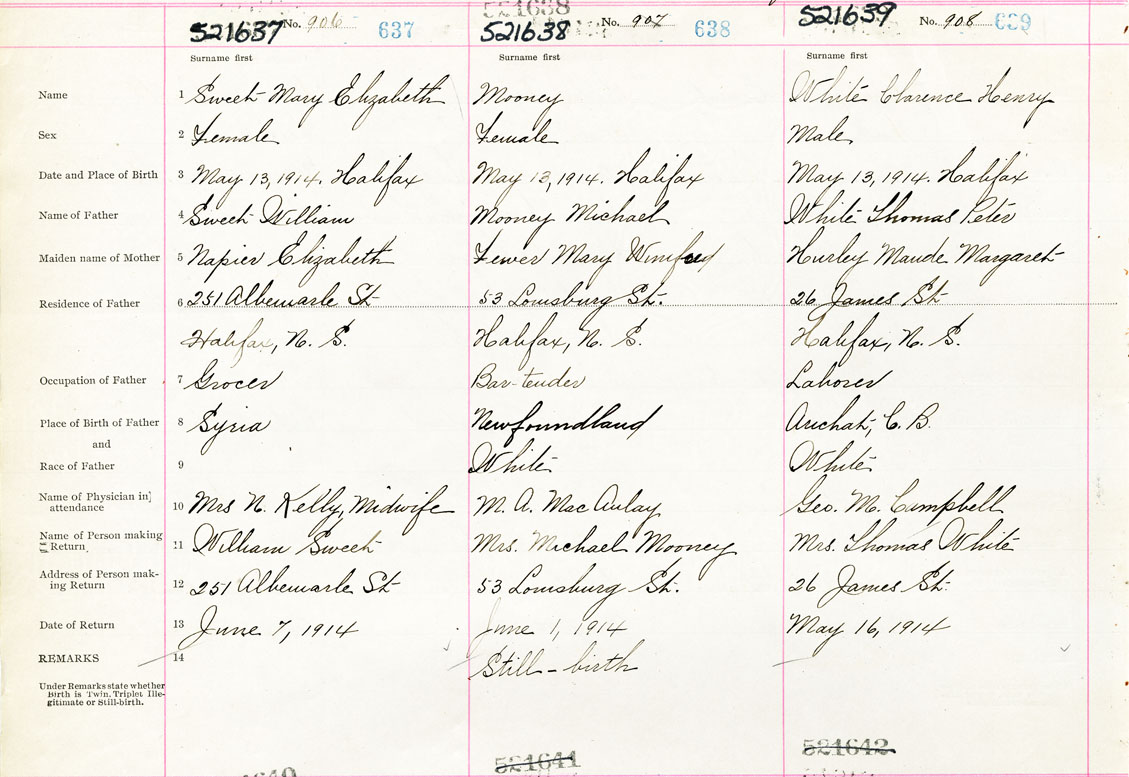 521638
521637 No. 906 637
521638 No. 907 638
521639 No. 908 639
Surname first Surname first Surname first
Name 1 Sweet Mary Elizabeth Mooney White Clarence Henry
Sex 2 Female Female Male
Date and Place of Birth 3 May 13, 1914. Halifax May 13, 1914. Halifax May 13, 1914. Halifax
Name of Father 4 Sweet William Mooney Michael White Thomas Peter
Maiden name of Mother 5 Napier Elizabeth Fewer Mary Winifred Hurley Maude Margaret
Residence of Father 6 251 Albemarle St 53 Louisburg St. 26 James St.
Halifax, N. S. Halifax, N. S. Halifax, N. S.
Occupation of Father 7 Grocer Bar-tender Laborer
Place of Birth of Father 8 Syria Newfoundland Arichat, C. B.
and
Race of Father 9 White White
Name of Physician in attendance 10 Mrs N. Kelly, Midwife M. A. MacAulay Geo. M. Campbell
Name of Person making Return 11 William Sweet Mrs. Michael Mooney Mrs. Thomas White
Address of Person mak-
ing Return 12 251 Albemarle St 53 Louisburg St. 26 James St.
Date of Return 13 June 7, 1914 June 1, 1914 May 16, 1914
REMARKS 14 Still-birth
Under Remarks state whether
Birth is Twin. Triplet Ille-
gitimate or Still-birth.
521641 521642